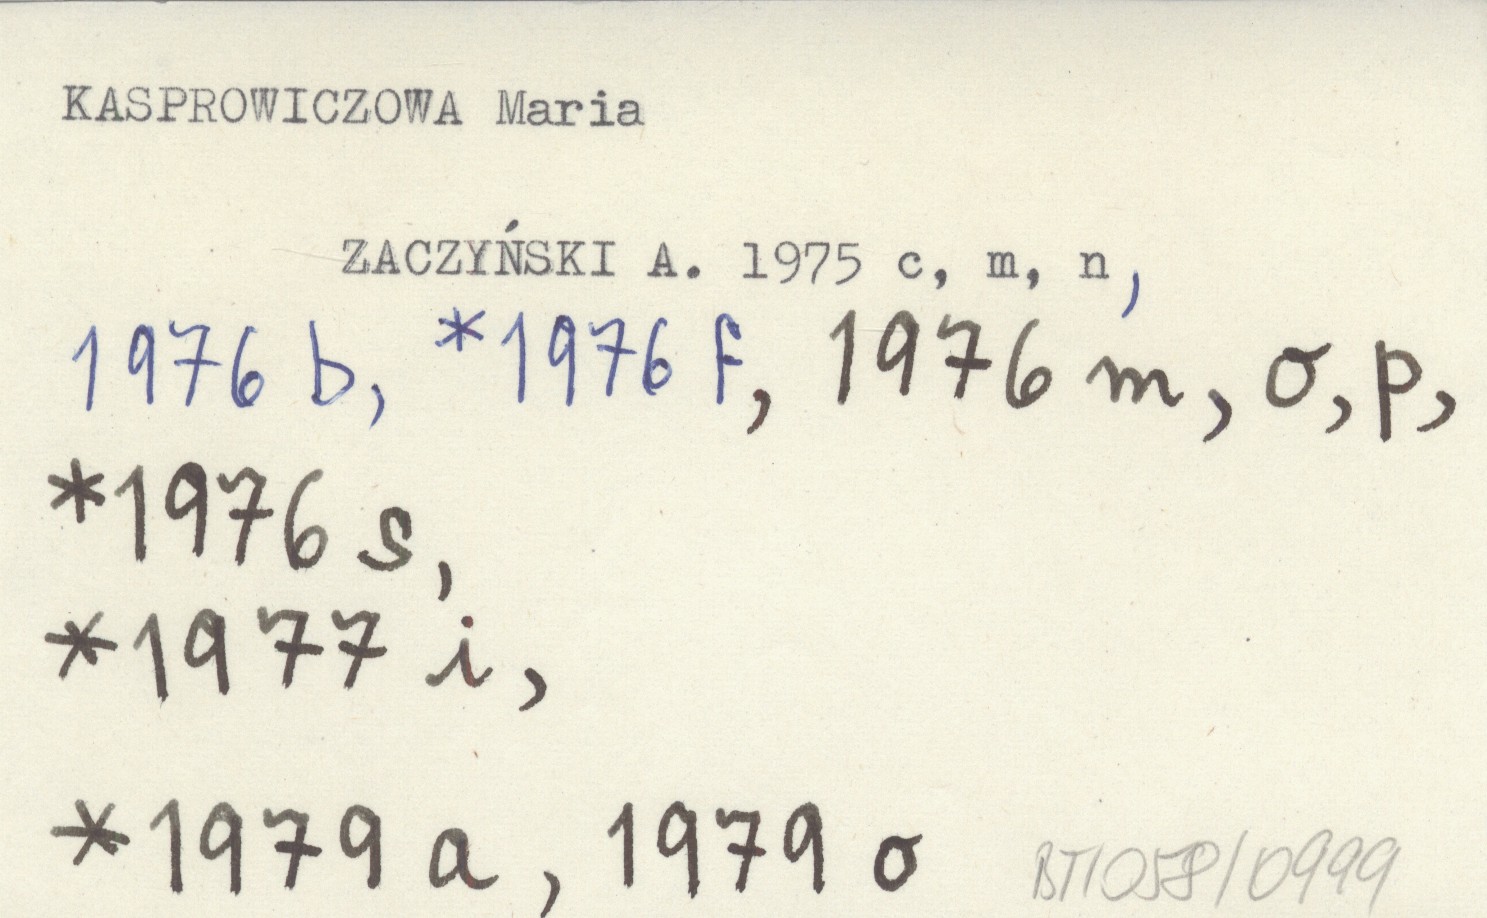 KASPROWICZOWA Maria
ZACZYŃSKI A. 1975 c, m, n,
1976 b, *1976 f, 1976 m, o, p,
*1976 s,
*1977 i,
*1979 a, 1979 o
BT/058/0999